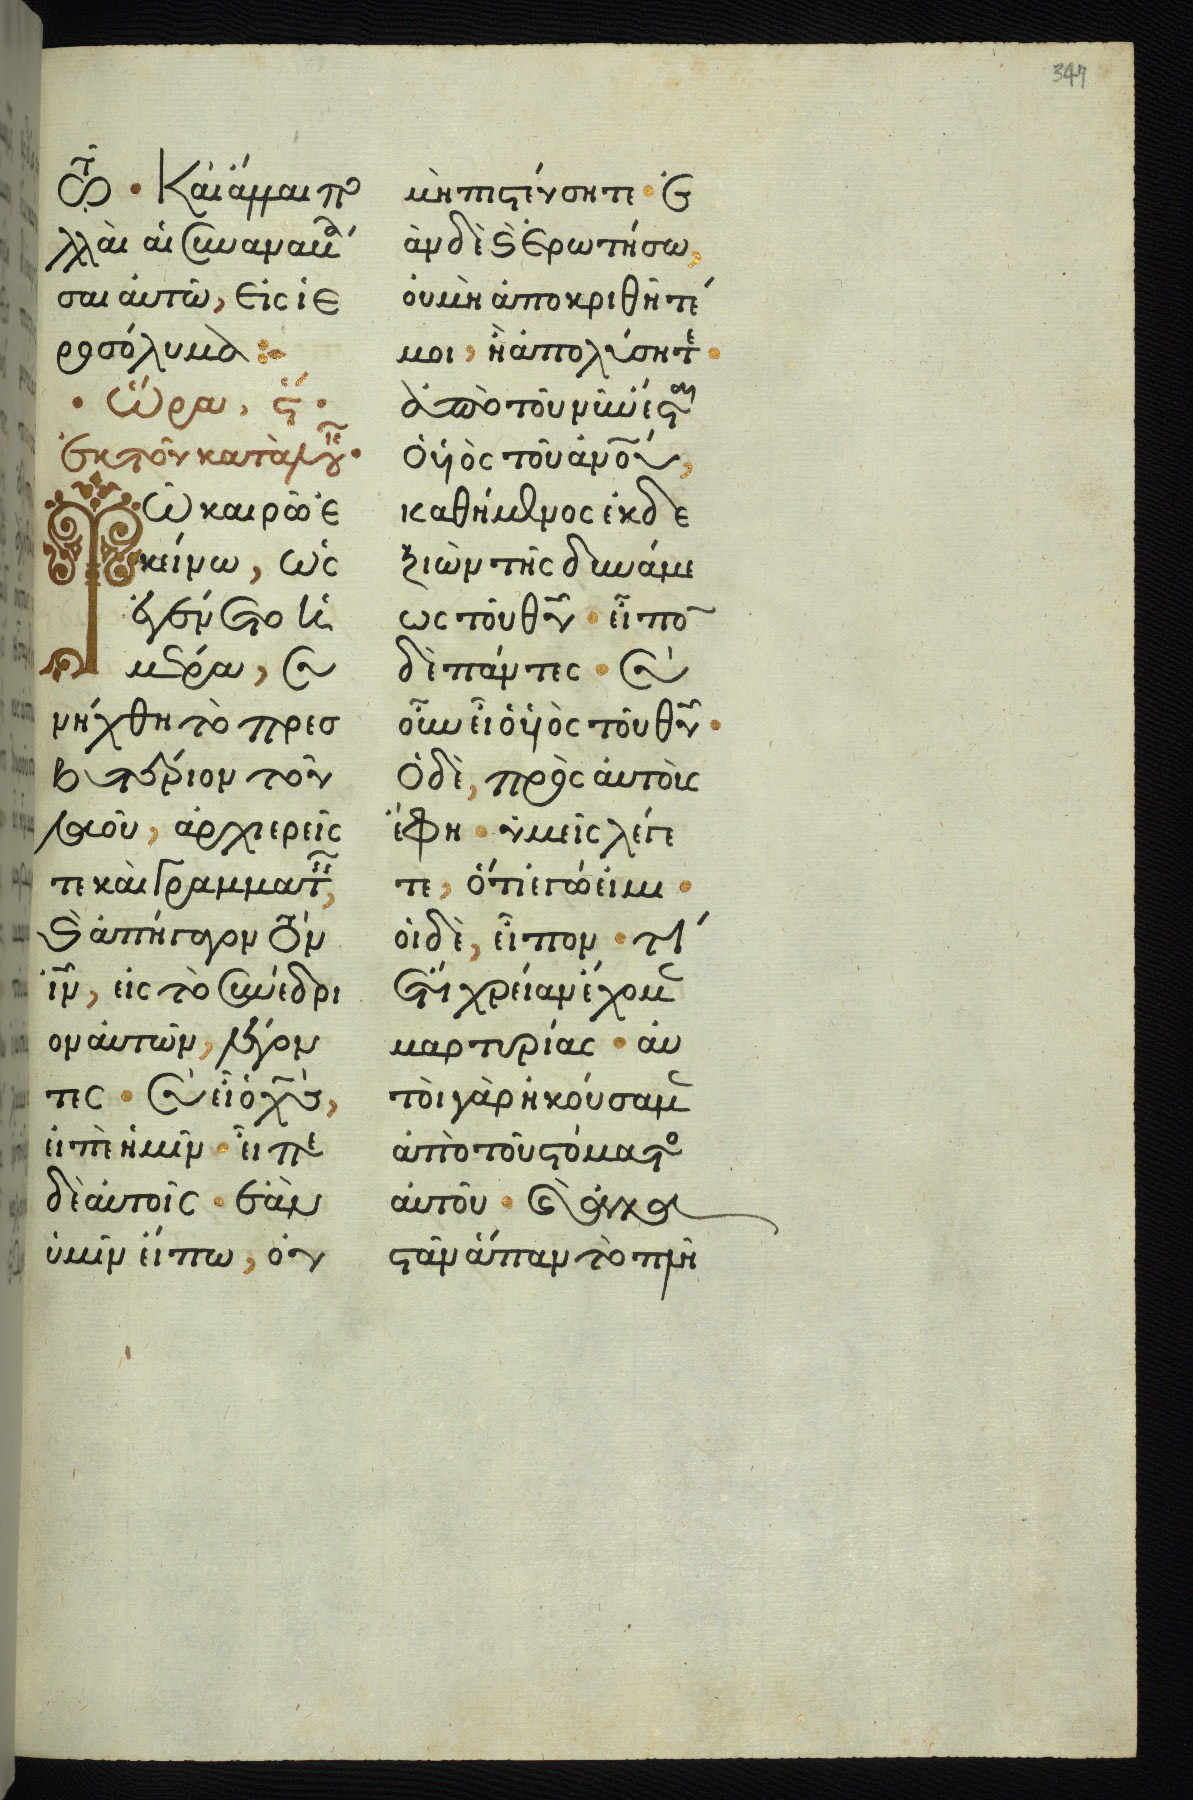 347
ῶ · Καὶ ἄλλαι πο
λλαὶ αἱ συναναβᾶ
σαι αὐτῶ, εἰς ἱε
ροσόλυμα :
· Ὥρα, ϛ ·
ἐκ τοῦ κατὰ λου ·
Τῶ καιρῶ ἐ
κείνω, ὡς
ἐγένετο ἡ
μέρα, συ
νήχθη τὸ πρεσ
βυτέριον τοῦ
λαοῦ, ἀρχιερεῖς
τε καὶ γραμματ,
καὶ ἀπήγαγον τὸν
ἰν, εἰς τὸ συνέδρι
ον αὐτῶν, λέγον
τες · σὺ εἶ ὁ χς,
εἰπὲ ἡμῖν · εἶπε
δὲ αὐτοῖς · ἐὰν
ὑμῖν εἴπω, οὐ
μὴ πιστεύσητε · ἐ
ὰν δὲ καὶ ἐρωτήσω,
οὐ μὴ ἀποκριθῆτέ
μοι, ἢ ἀπολύσητε ·
ἀπὸ τοῦ νῦν ἔσται
ὁ υἱὸς τοῦ ἀνου,
καθήμενος ἐκ δε
ξιῶν τῆς δυνάμε
ως τοῦ θυ · εἶπο
δὲ πάντες · σὺ
οὖν εἶ ὁ υἱὸς τοῦ θυ ·
Ὁ δὲ, πρὸς αὐτοὺς
ἔφη · ὑμεῖς λέγε
τε, ὅτι ἐγώ εἰμι ·
οἱ δὲ, εἶπον · τί
ἔτι χρείαν ἔχομεν
μαρτυρίας · αὐ
τοὶ γὰρ ἠκούσαμεν
ἀπὸ τοῦ στόματος
αὐτοῦ · καὶ ἀνα
στὰν ἅπαν τὸ πλῆ